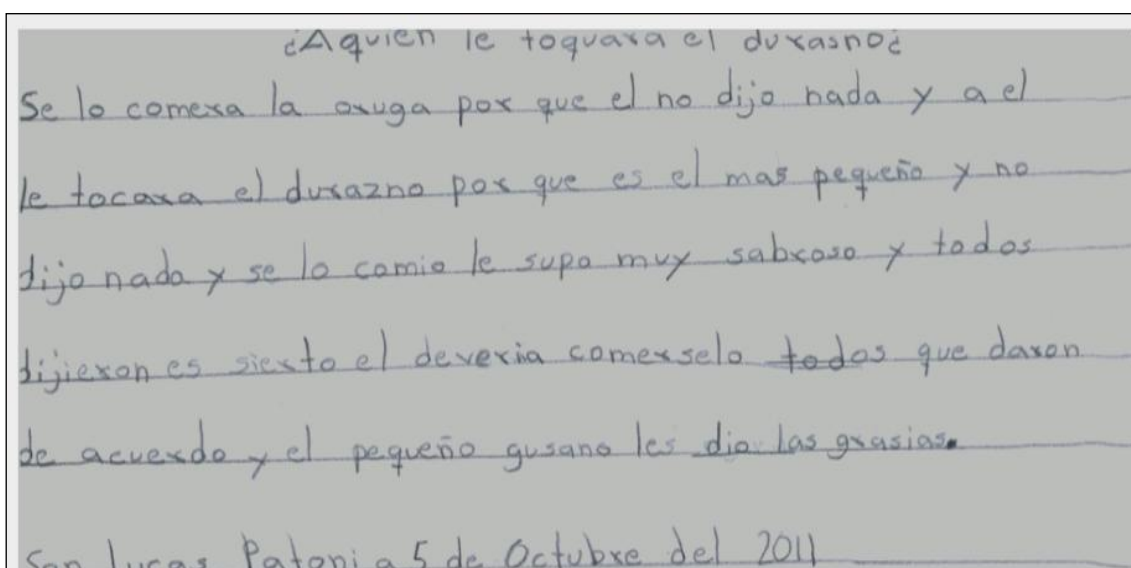 ¿Aquien le toquara el durasno¿
Se lo comera la oruga por que el no dijo nada y a el
le tocara el durazno por que es el mas pequeño y no
dijo nada y se lo comio le supo muy sabroso y todos
dijieron es sierto el deveria comerselo todos que daron
de acuerdo y el pequeño gusano les dio las grasias.
San lucas Patoni a 5 de Octubre del 2011